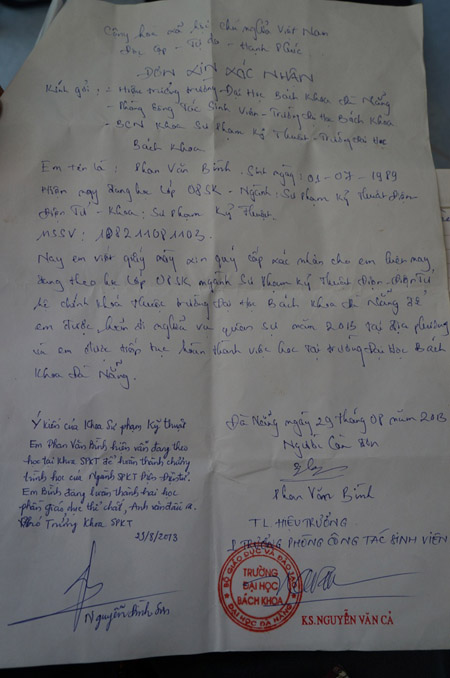 Cộng hoà xã hội chủ nghĩa Việt Nam
Độc lập - Tự do - Hạnh Phúc
ĐƠN XIN XÁC NHẬN
Kính gửi : - Hiệu trưởng trường Đại Học Bách Khoa Đà Nẵng
- Phòng Công Tác Sinh Viên - Trường Đại Học Bách Khoa
- BCN Khoa Sư Phạm Kỹ Thuật - Trường Đại Học
Bách Khoa
Em tên là : Phan Văn Bình . Sinh ngày : 01 - 07 - 1989
Hiện nay đang học Lớp 08SK - Ngành : Sư Phạm Kỹ Thuật Điện -
Điện Tử - Khoa : Sư Phạm Kỹ Thuật.
MSSV : 108211081103.
Nay em viết giấy này xin quý cấp xác nhận cho em hiện nay
đang theo học Lớp 08SK ngành Sư Phạm Kỹ Thuật Điện - Điện Tử
hệ chính khoá thuộc trường Đại Học Bách Khoa Đà Nẵng để
em được hoãn đi nghĩa vụ quân sự năm 2013 tại địa phương
và em được tiếp tục hoàn thành việc học tại trường Đại Học Bách
Khoa Đà Nẵng.
Đà Nẵng ngày 29 tháng 08 năm 2013
Người làm đơn
Phan Văn Bình
Ý kiến của Khoa Sư phạm Kỹ thuật
Em Phan Văn Bình hiện vẫn đang theo
học tại Khoa SPKT để hoàn thành chương
trình học của Ngành SPKT Điện Điện tử.
Em Bình đang hoàn thành hai học
phần giáo dục thể chất, Anh văn
Phó Trưởng Khoa SPKT
29/8/2013
Nguyễn Đình Sơn
TL HIỆU TRƯỞNG
TRƯỞNG PHÒNG CÔNG TÁC SINH VIÊN
BỘ GIÁO DỤC VÀ ĐÀO TẠO
TRƯỜNG
ĐẠI HỌC
BÁCH KHOA
ĐẠI HỌC ĐÀ NẴNG
KS.NGUYỄN VĂN CẢ